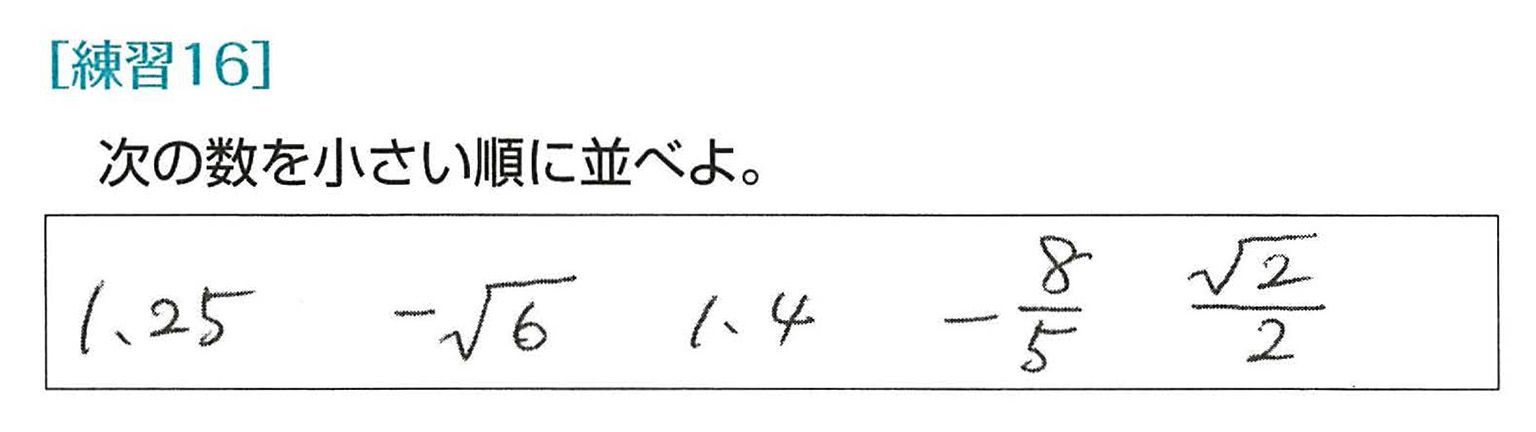 [練習16]
次の数を小さい順に並べよ。
1、25 -√6 1、4 -8/5 √2/2